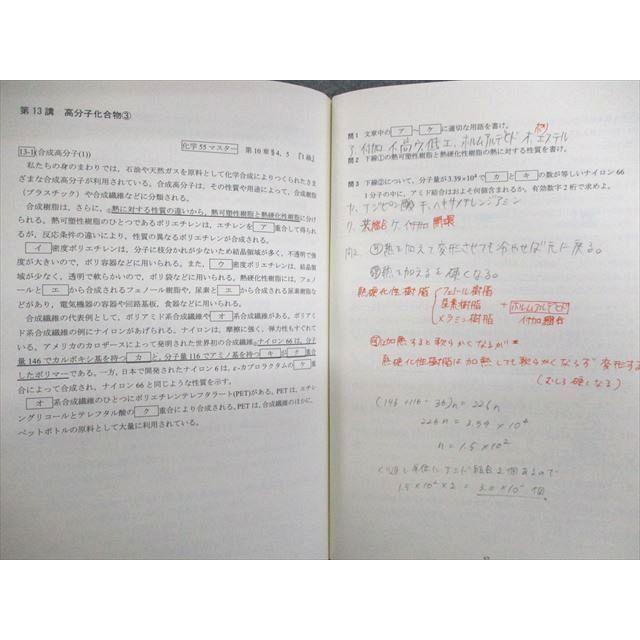 第13講 高分子化合物③
化学55マスター 第10章§4, 5 『1级』
13-1(合成高分子(1))
私たちの身のまわりでは，石油や天然ガスを原料として化学合成によりつくられたさま
ざまな合成高分子が利用されている。合成高分子は，その性質や用途によって，合成樹脂
（プラスチック）や合成繊維などに分類される。
合成樹脂は，さらに，①熱に対する性質の違いから，熱可塑性樹脂と熱硬化性樹脂に分け
られる。熱可塑性樹脂のひとつであるポリエチレンは，エチレンを ア 重合して得られ
るが，反応条件の違いにより，性質の異なるポリエチレンが合成される。
イ 密度ポリエチレンは，分子に枝分かれが少ないため結晶領域が多く，不透明で強
度が大きいので，ポリ容器などに用いられる。また， ウ 密度ポリエチレンは，結晶領
域が少なく，透明で軟らかいので，ポリ袋などに用いられる。熱硬化性樹脂には，フェノ
ールと エ から合成されるフェノール樹脂や，尿素と エ から合成される尿素樹脂な
どがあり，電気機器の容器や回路基板，食器などに用いられる。
合成繊維の代表例として，ポリアミド系合成繊維や オ 系合成繊維がある。ポリアミ
ド系合成繊維の例にナイロンがあげられる。ナイロンは，摩擦に強く，弾力性もすぐれて
いる。アメリカのカロザースによって発明された世界初の合成繊維②ナイロン66は，分子
量146でカルボキシ基を持つ カ と，分子量116でアミノ基を持つ キ が ク 重合
したポリマーである。一方，日本で開発されたナイロン6は，ε-カプロラクタムの ケ 重
合によって合成され，ナイロン66と同じような性質を示す。
オ 系合成繊維のひとつにポリエチレンテレフタラート(PET)がある。PETは，エチレ
ングリコールとテレフタル酸の ク 重合により合成される。PETは，合成繊維のほかに，
ペットボトルの原料として大量に利用されている。
問1 文章中の ア ～ ケ に適切な用語を書け。
ア,付加 イ,高 ウ,低 エ,ホルムアルデヒド オ,エステル
問2 下線①の熱可塑性樹脂と熱硬化性樹脂の熱に対する性質を書け。
問3 下線②について，分子量が3.39×10⁴で カ と キ の数が等しいナイロン66
1分子中に，アミド結合はおよそ何個含まれるか。有効数字2桁で求めよ。
キ,ヘキサメチレンジアミン
ケ,付加 開環
問2. 熱を加えて変形させても冷やせば元に戻る。
熱を加えると硬くなる。
熱硬化性樹脂
フェノール樹脂
尿素樹脂
メラミン樹脂
+ ホルムアルデヒド
付加縮合
加熱すると軟らかくなるが
熱硬化性樹脂は加熱しても軟らかくならず 変形する
(むしろ硬くなる)
(146+116-36)n = 226n
226n = 3.39 × 10⁴
n = 1.5 × 10²
くり返し単位にアミド結合2個あるので
1.5×10²×2 = 3.0×10² 個